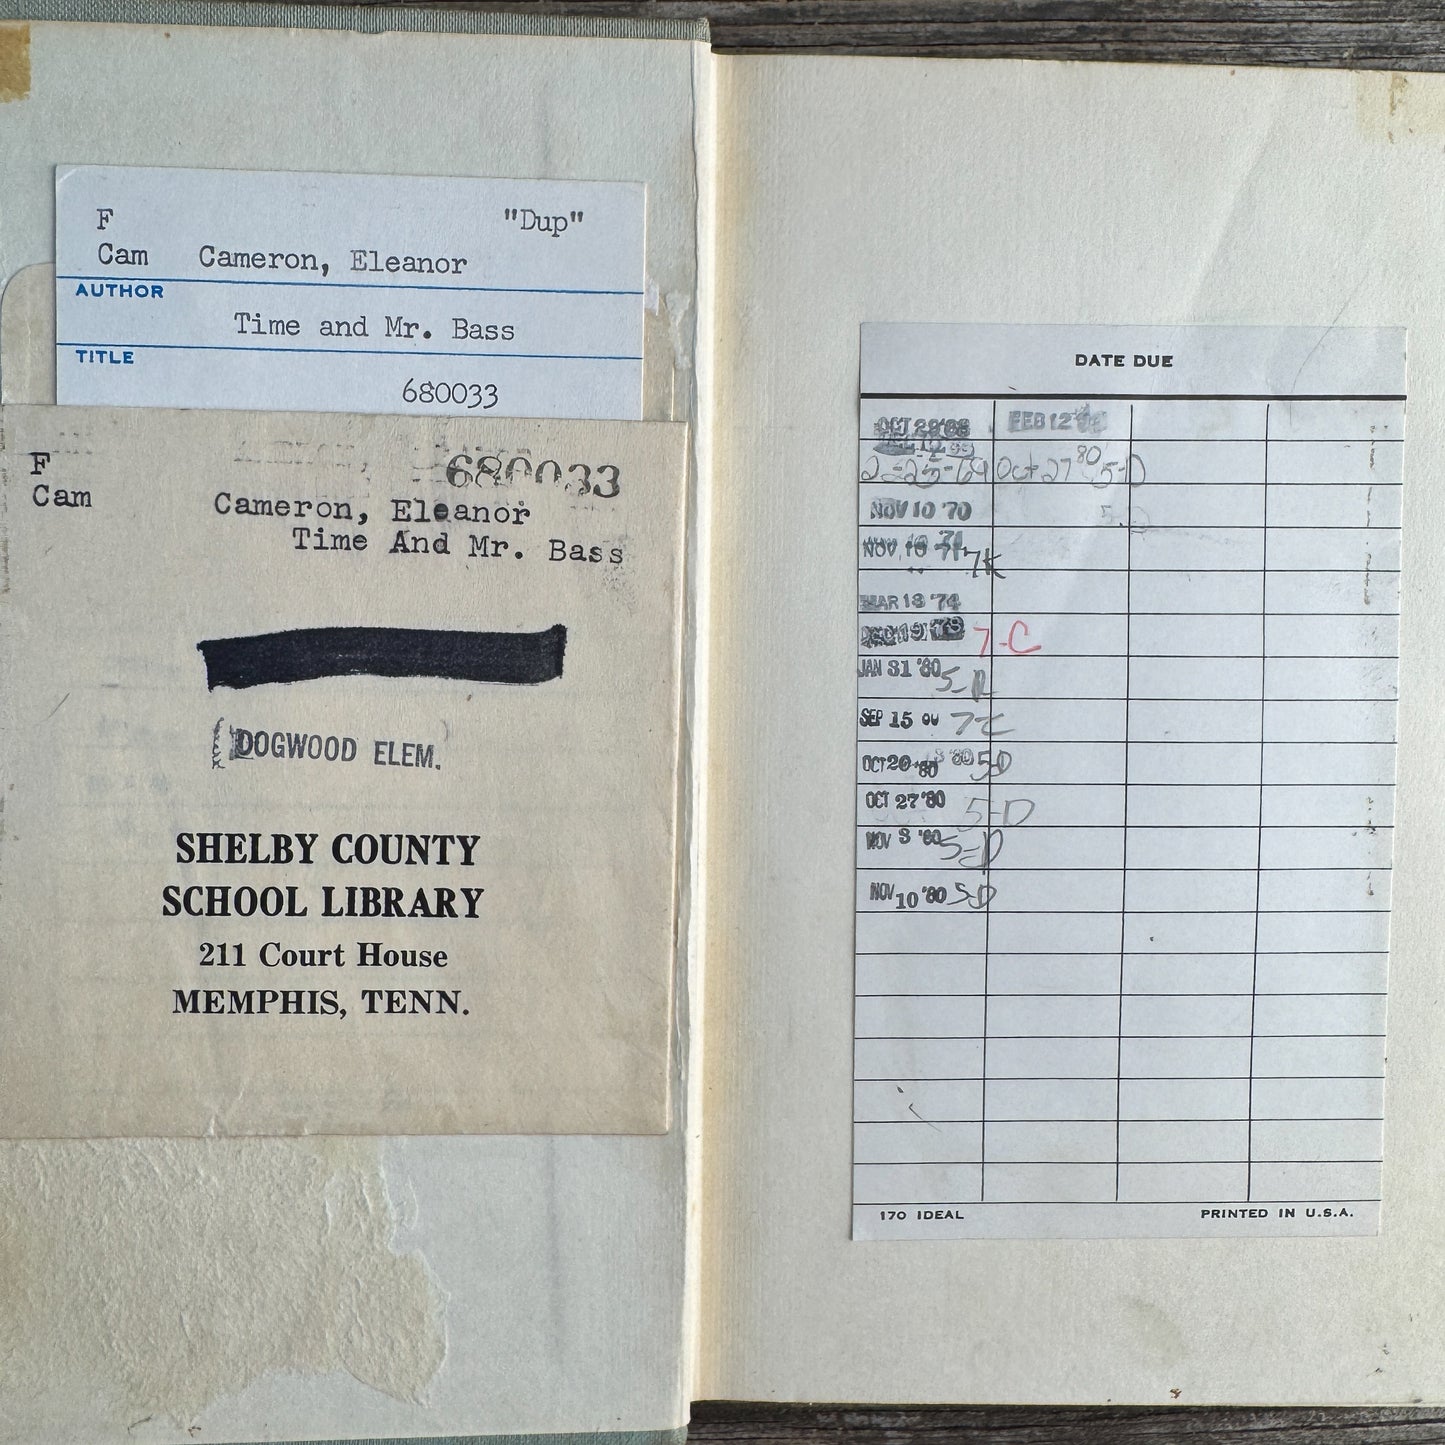 F "Dup"
Cam Cameron, Eleanor
AUTHOR
Time and Mr. Bass
TITLE
680033
680033
F
Cam Cameron, Eleanor
Time And Mr. Bass
DOGWOOD ELEM.
SHELBY COUNTY
SCHOOL LIBRARY
211 Court House
MEMPHIS, TENN.
DATE DUE
OCT 29 '68 FEB 12
2-25-69 Oct 27 80 5-D
NOV 10 '70
NOV 7K
MAR 18 '74
DEC 19 7-C
JAN 31 '80
SEP 15 7C
OCT 20 '80 5D
OCT 27 '80 5-D
NOV 3 '80 5-D
NOV 10 '80 5-D
170 IDEAL PRINTED IN U.S.A.